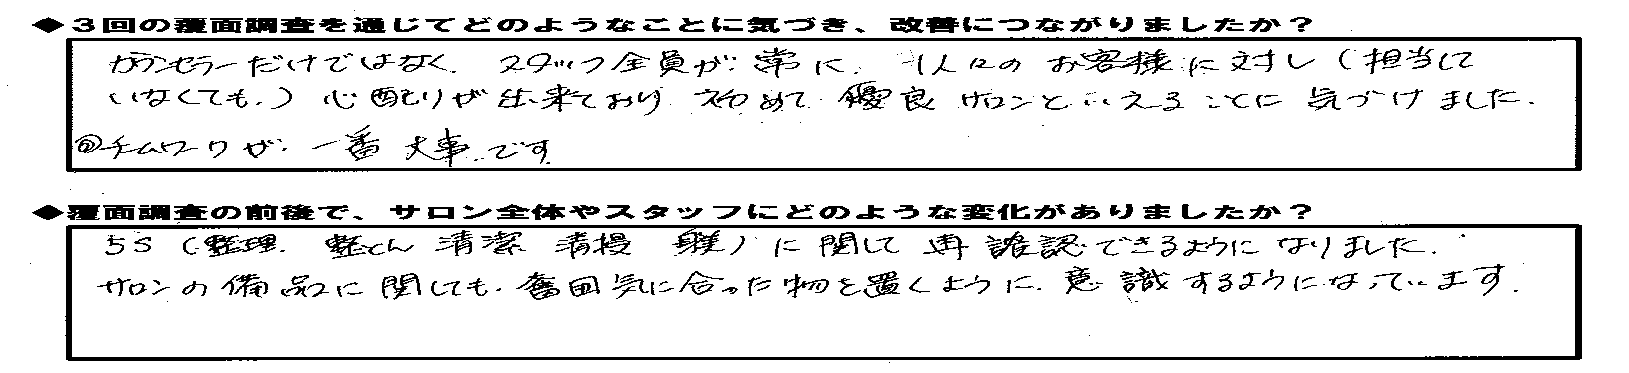 ◆３回の覆面調査を通じてどのようなことに気づき、改善につながりましたか？
カウンセラーだけではなく、スタッフ全員が、常に、1人1人のお客様に対し（担当して
いなくても。）心配りが出来ており、初めて、優良サロンといえることに気づけました。
@チームワークが、一番大事です。
◆覆面調査の前後で、サロン全体やスタッフにどのような変化がありましたか？
5S（整理、整とん 清潔 清掃 身美）に関して 再認認できるようになりました。
サロンの備品に関しても、雰囲気に合った物を置くように、意識するようになっています。